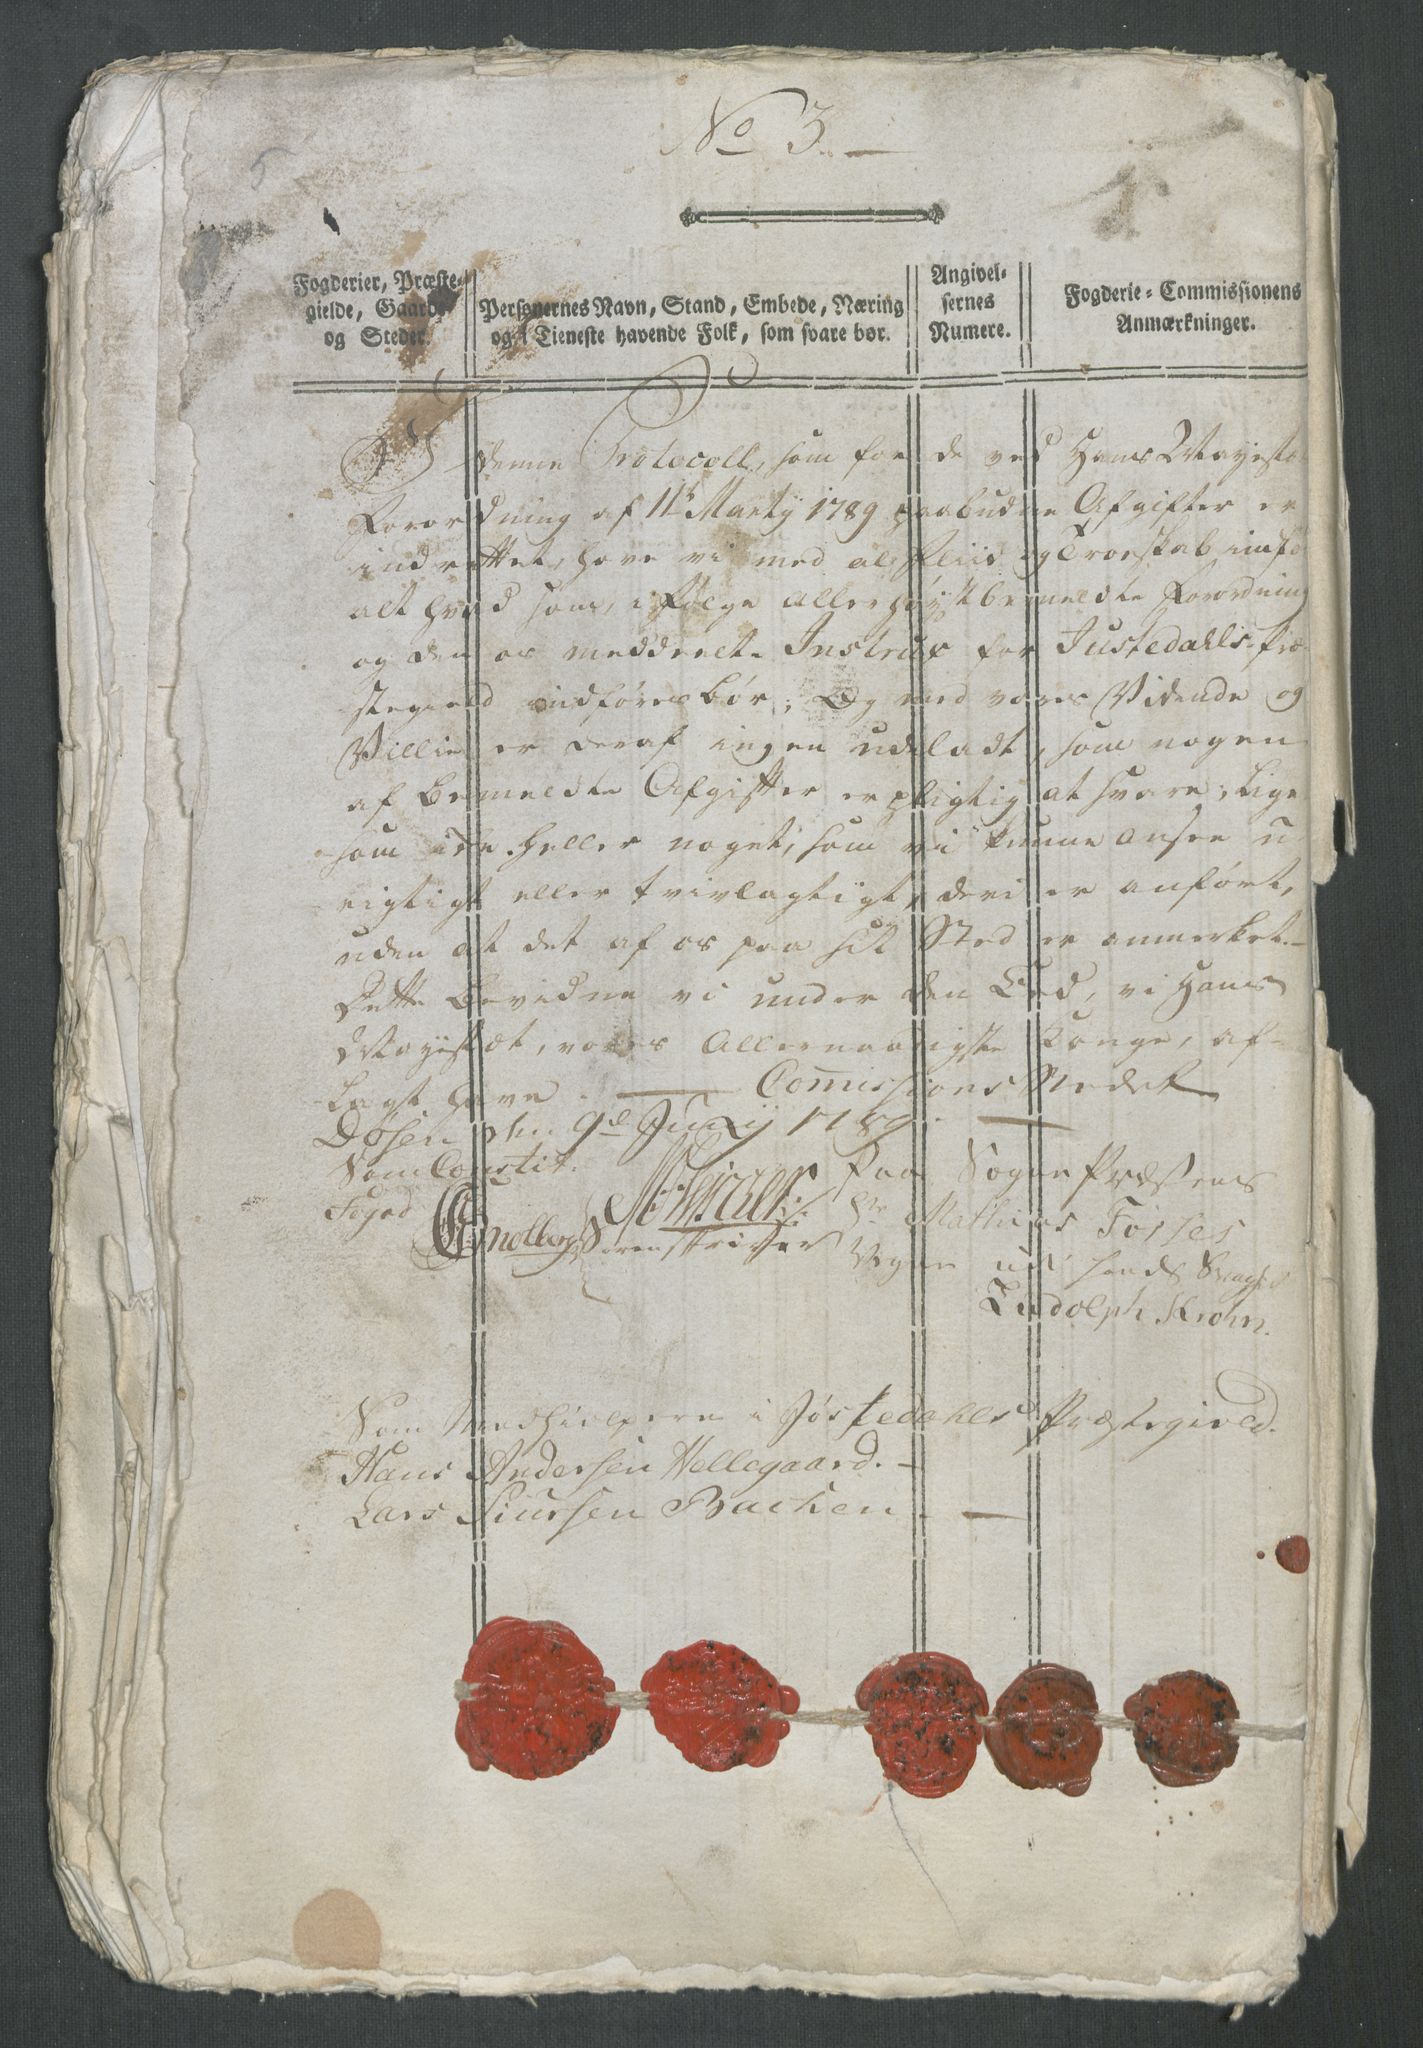 No 3.
Fogderier, Præste-
gielde, Gaarde
og Steder.
Personernes Navn, Stand, Embede, Næring
og i Tieneste havende Folk, som svare bør.
Angivel-
sernes
Numere.
Fogderie-Commissionens
Anmærkninger.
I denne Protocoll, som for de ved Hans Mayestæ
Forordning af 11te Martij 1789 paabudne Afgifter er
indrettet, have vi med al Fliid og Troeskab indfø
alt hvad som, i Følge Allerhøystbemeldte Forordning
og den os meddeelte Instrux for Justedahls Præ-
stegield indføres bør; Og med vores Vidende og
Villie er deraf ingen udeladt, som nogen
af bemeldte Afgifter er pligtig at svare; lige
som ikke heller noget, som vi kunne ansee u-
rigtigt eller tvivlagtigt, deri er anført,
uden at det af os paa sit Sted er anmerket.
Dette bevidne vi under den Eed, vi Hans
Mayestæt, vores Allernaadigste Konge, af-
lagt have. Commissions Mødet
Døsen den 9de Junij 1789.
Som Constit.
Foged
Sorenskriver
Paa Sogne Præstens
Hr Mathias Forses
Vegne
Ludolph Krohn.
Som Medhielpere i Jøstedahls Præstegield.
Hans Andersen Hellegaard.
Lars Siursen Backen